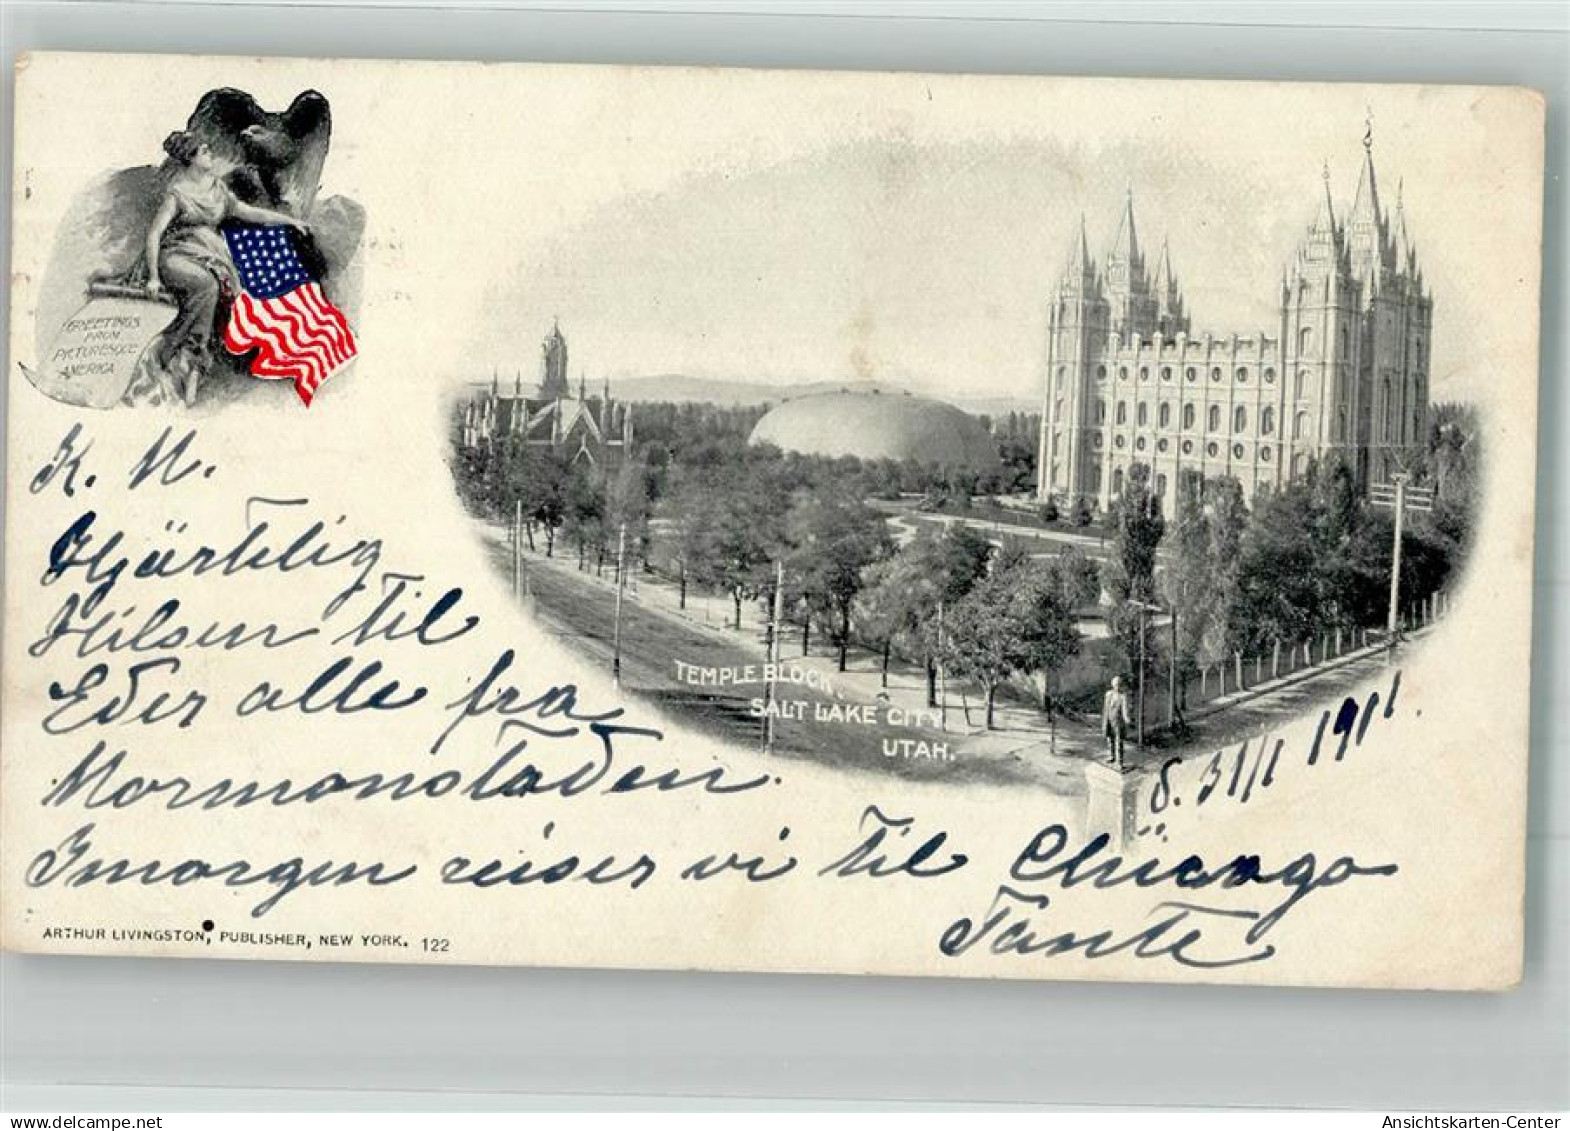 GREETINGS
FROM
PICTURESQUE
AMERICA
K. N.
Hjärtlig
Hilsen til
Eder alle fra
Mormonstaden.
Imorgen reiser vi til Chicago
Tante
d. 31/1 1911.
TEMPLE BLOCK,
SALT LAKE CITY
UTAH.
ARTHUR LIVINGSTON, PUBLISHER, NEW YORK. 122
Ansichtskarten-Center